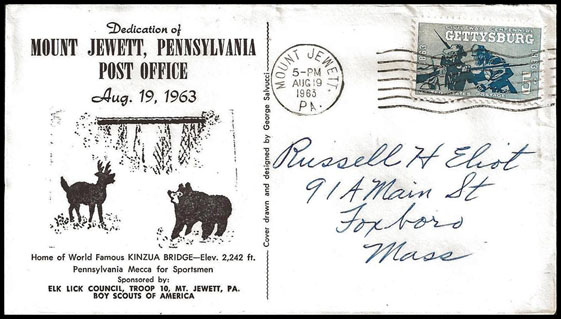 Dedication of
MOUNT JEWETT, PENNSYLVANIA
POST OFFICE
Aug. 19, 1963
Home of World Famous KINZUA BRIDGE—Elev. 2,242 ft.
Pennsylvania Mecca for Sportsmen
Sponsored by:
ELK LICK COUNCIL, TROOP 10, MT. JEWETT, PA.
BOY SCOUTS OF AMERICA
Cover drawn and designed by George Salvucci
MOUNT JEWETT,
5-PM
AUG 19
1963
PA.
GETTYSBURG
Russell H Eliot
91A Main St
Foxboro
Mass